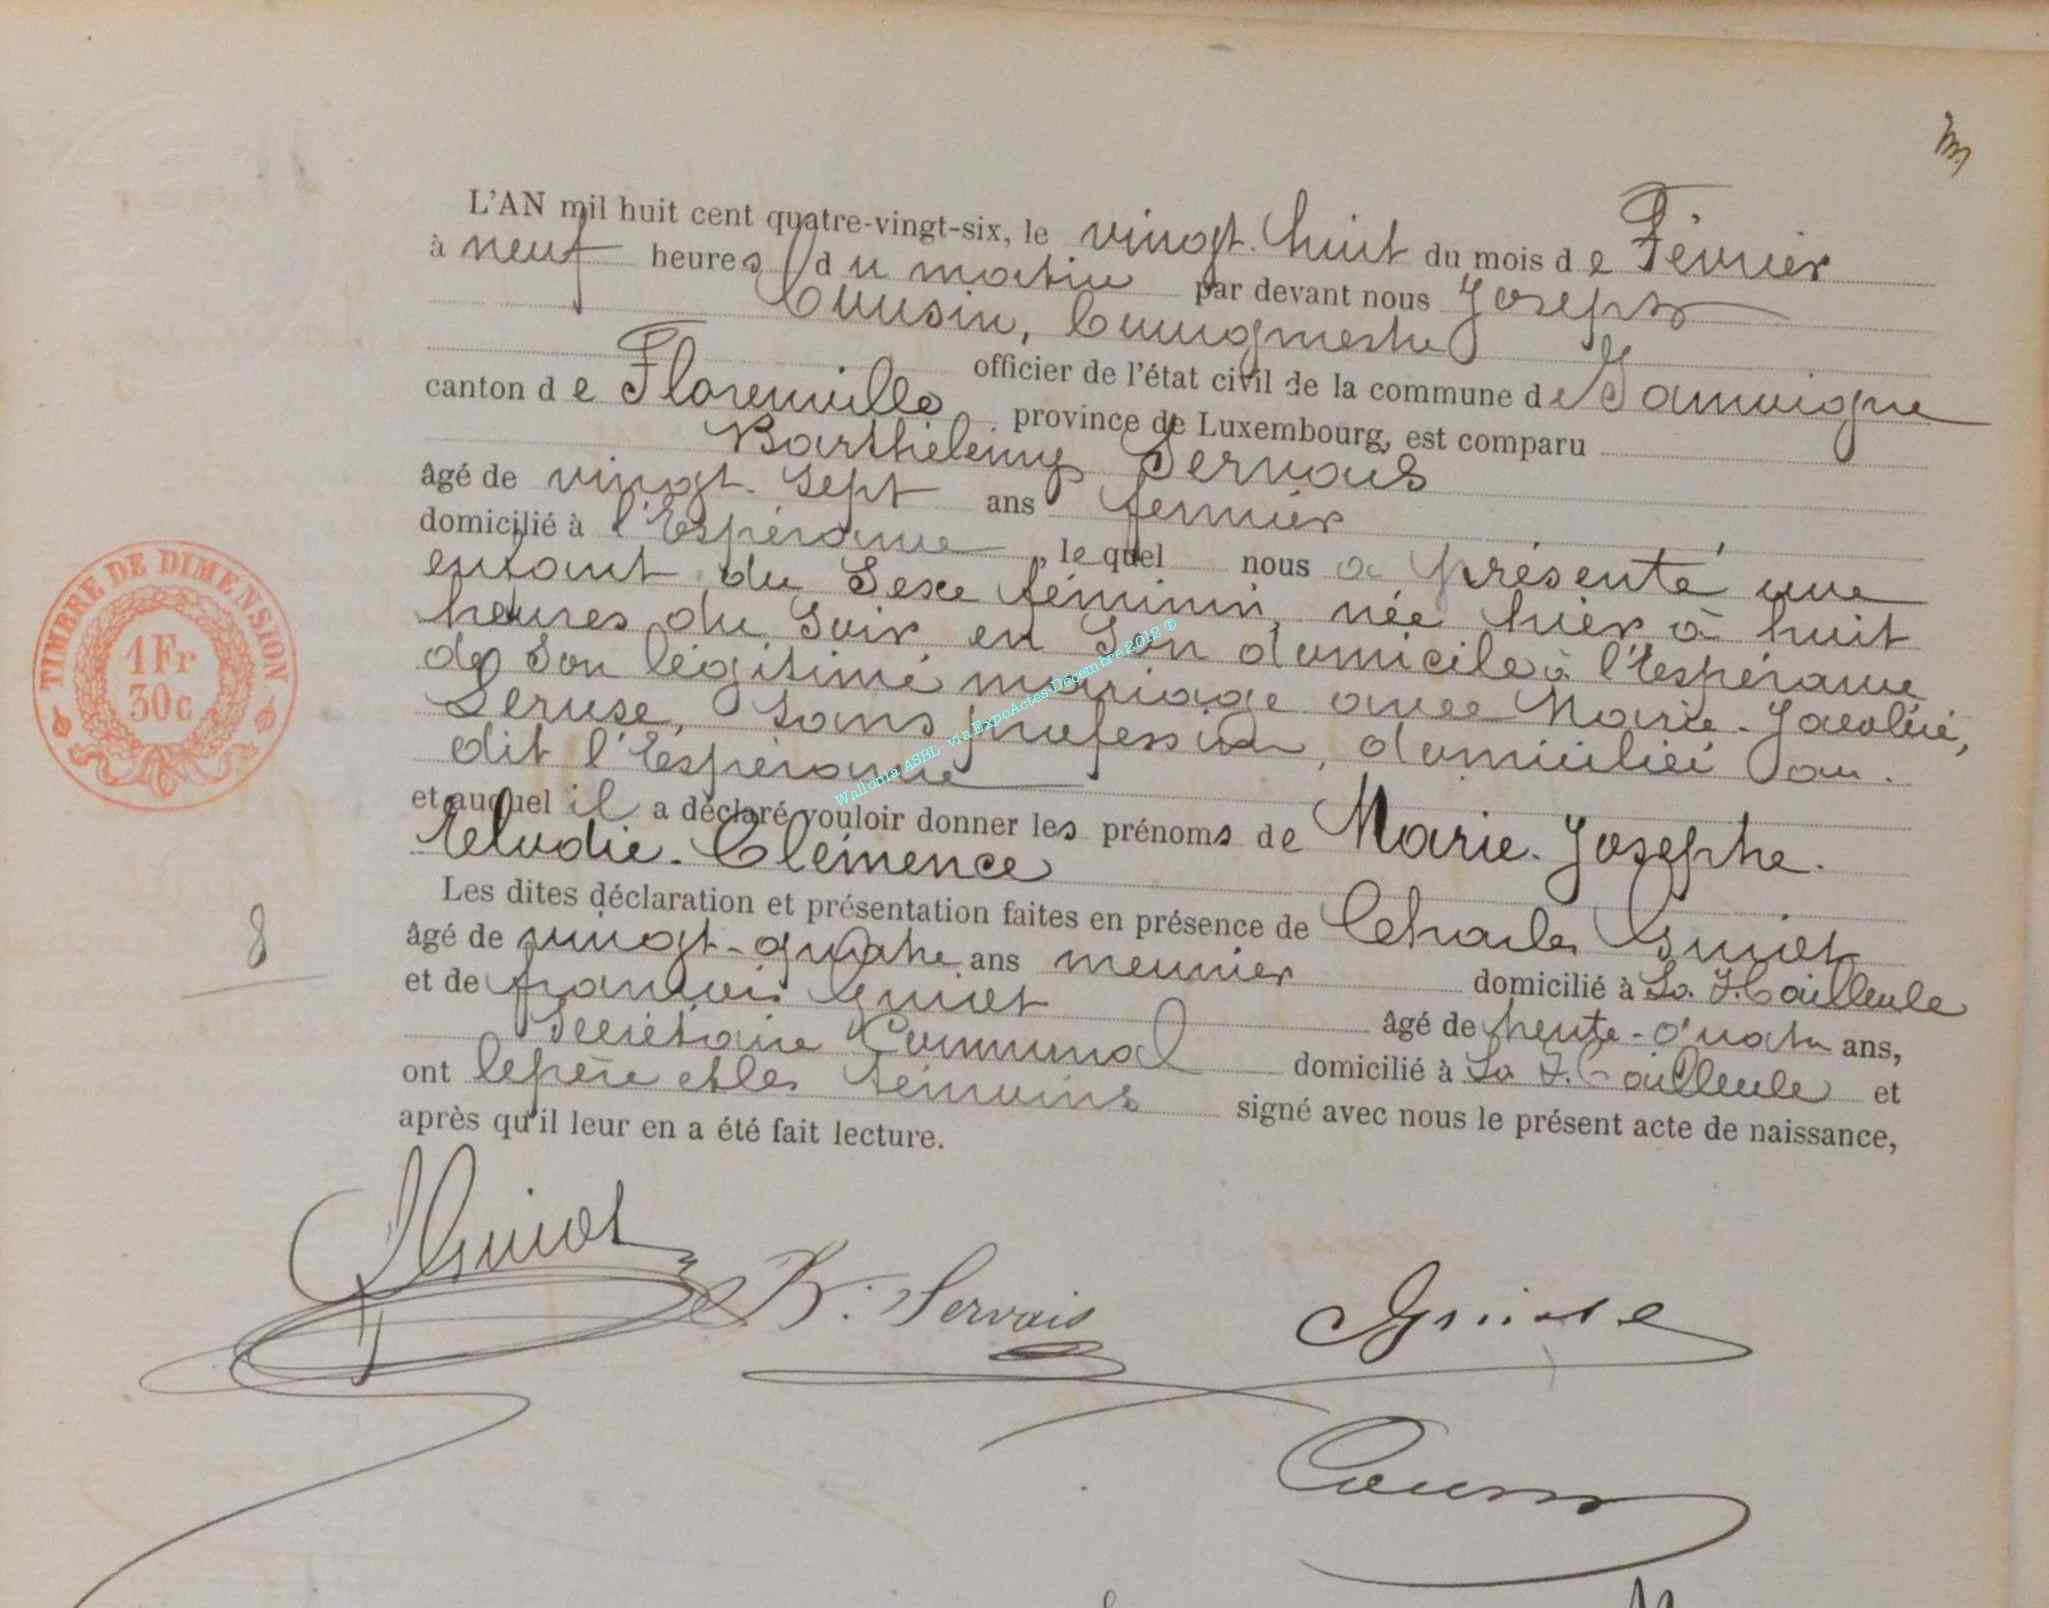 L'AN mil huit cent quatre-vingt-six, le vingt-huit du mois de Février
à neuf heures du matin par devant nous Joseph
Cousin, Bourgmestre
officier de l'état civil de la commune de Jamoigne
canton de Florenville province de Luxembourg, est comparu
Barthélemy Servais
âgé de vingt-sept ans fermier
domicilié à l'Espérance, le quel nous a présenté une
enfant du Sexe féminin, née hier à huit
heures du Soir en Son domicile à l'Espérance
de Son légitime mariage avec Marie-
sans profession, domicilié au
dit l'Espérance
et auquel il a déclaré vouloir donner les prénoms de Marie-Josephe-
Elodie-Clémence
Les dites déclaration et présentation faites en présence de Charles Guiot
âgé de vingt-quatre ans meunier domicilié à La
et de françois Guiot âgé de trente-quatre ans,
Secrétaire Communal domicilié à La et
ont le père et les témoins signé avec nous le présent acte de naissance,
après qu'il leur en a été fait lecture.
TIMBRE DE DIMENSION
1 Fr
30 c
8
Wallonia ASBL - via ExpoActes Décembre 2012 ®
Guiot
B. Servais
Cousin